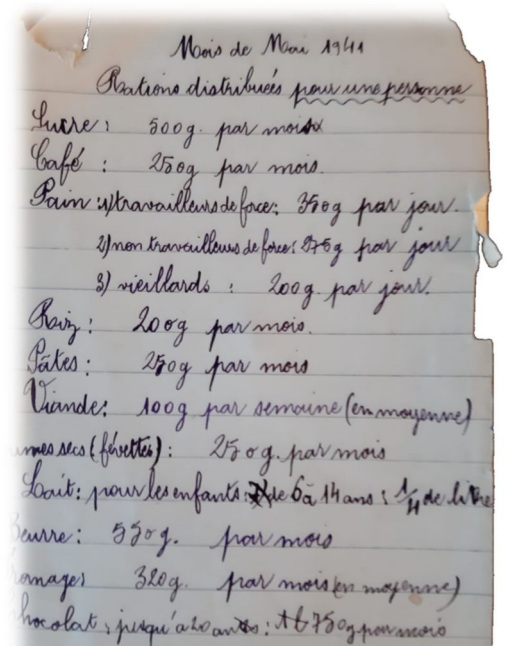 Mois de Mai 1941
Rations distribuées pour une personne
Sucre : 500g. par mois
Café : 250g par mois.
Pain : 1) travailleurs de force : 350g par jour.
2) non travailleurs de force : 275g par jour
3) vieillards : 200g par jour.
Riz : 200g par mois.
Pâtes : 250g par mois
Viande : 100g par semaine (en moyenne)
umes secs (févettes) : 250g. par mois
Lait : pour les enfants : de 6 à 14 ans : 1/4 de litre
Beurre : 550g. par mois
romage : 320g. par mois (en moyenne)
hocolat : jusqu'à 20 ans : 750g par mois